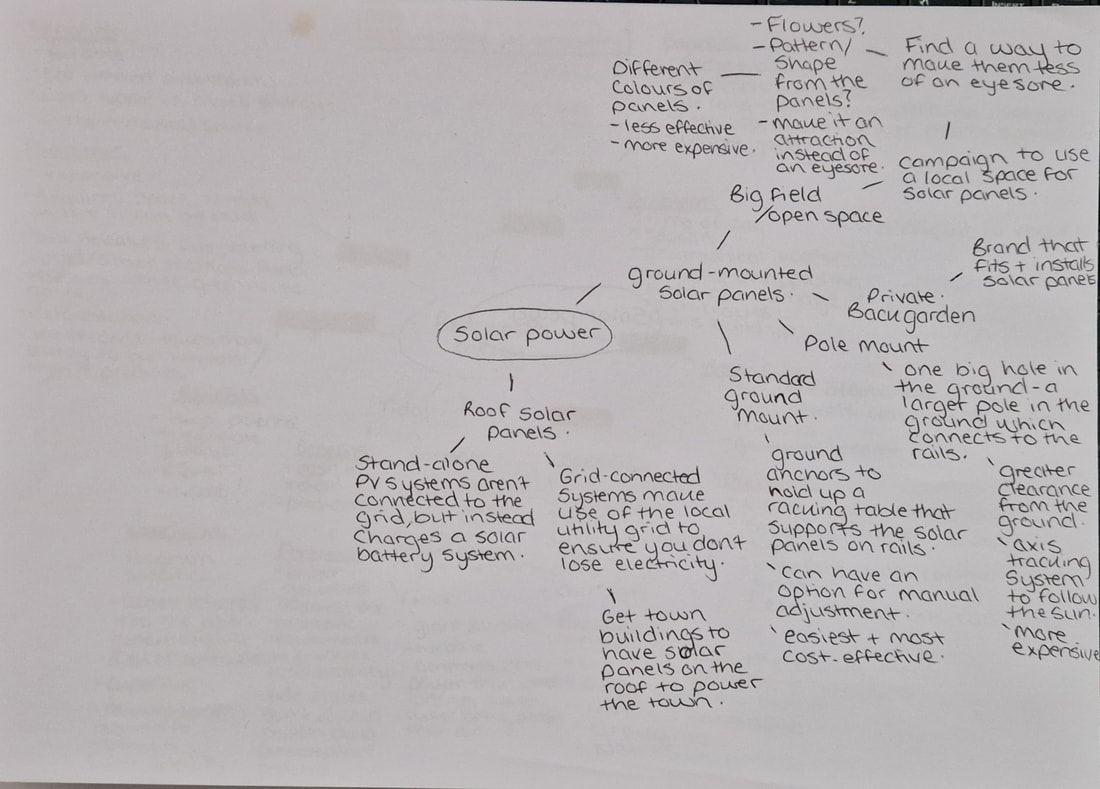 - Flowers?
- Pattern/
shape
from the
panels?
- make it an
attraction
instead of
an eyesore.
Find a way to
make them less
of an eyesore.
Different
colours of
panels.
- less effective
- more expensive.
campaign to use
a local space for
solar panels.
Big field
/open space
Brand that
fits + installs
solar panels
ground-mounted
solar panels.
Private.
Back garden
Solar power
Pole mount
one big hole in
the ground - a
larger pole in the
ground which
connects to the
rails.
greater
clearance
from the
ground.
axis
tracking
system
to follow
the sun.
more
expensive
Standard
ground
mount.
ground
anchors to
hold up a
racking table that
supports the solar
panels on rails.
can have an
option for manual
adjustment.
easiest + most
cost-effective.
Roof solar
panels.
Stand-alone
PV systems arent
connected to the
grid, but instead
charges a solar
battery system.
Grid-connected
systems make
use of the local
utility grid to
ensure you dont
lose electricity.
Get town
buildings to
have solar
panels on the
roof to power
the town.